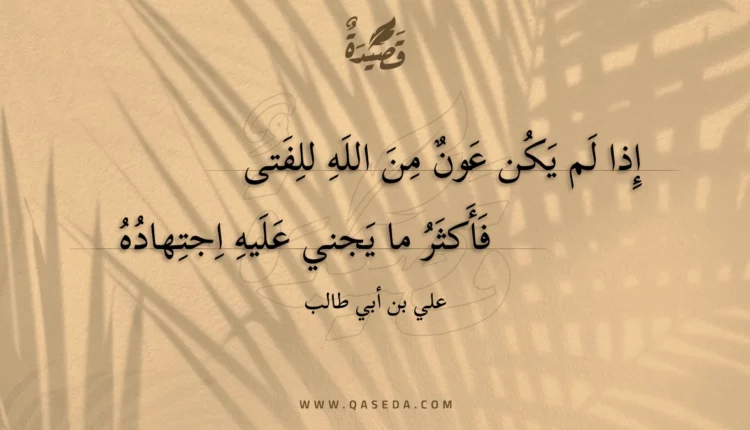 قَصِيْدَةٌ
إِذا لَم يَكُن عَونٌ مِنَ اللَهِ للِفَتى
فَأَكثَرُ ما يَجني عَلَيهِ اِجتِهادُهُ
علي بن أبي طالب
WWW.QASEDA.COM